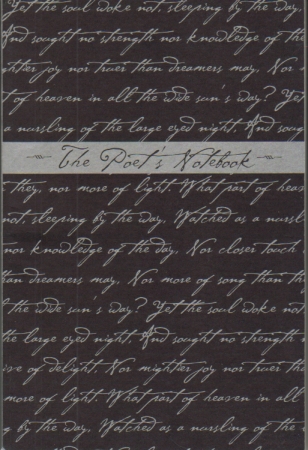 Yet the soul woke not, sleeping by the way
And sought no strength nor knowledge of the
ghtier joy nor truer than dreamers may, Nor
t of heaven in all the wide sun's way? Yet
a nursling of the large eyed night, And soug
The Poet's Notebook
they, nor more of light. What part of hea
not, sleeping by the way, Watched as a nursl
nor knowledge of the day, Nor closer touch
han dreamers may, Nor more of song than th
the wide sun's way? Yet the soul woke not
he large eyed night, And sought no strength n
ive of delight, Nor mightier joy nor truer tha
more of light. What part of heaven in all
by the way, Watched as a nursling of the